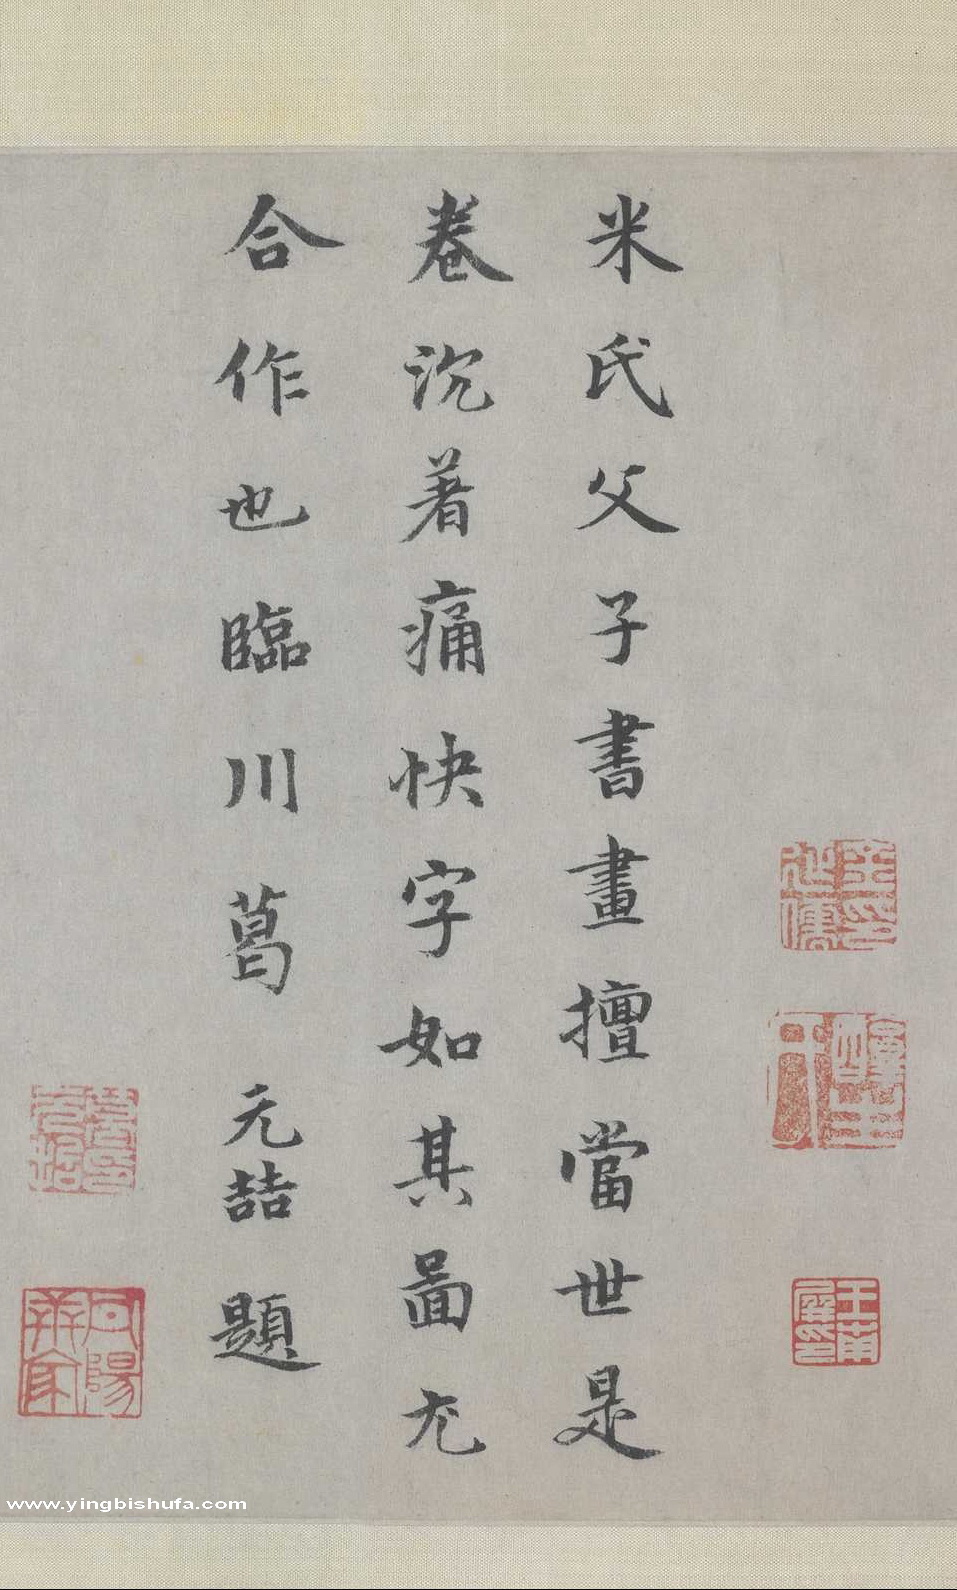 米氏父子書畫擅當世是
卷沉著痛快字如其啚尤
合作也臨川葛元喆題
www.yingbishufa.com